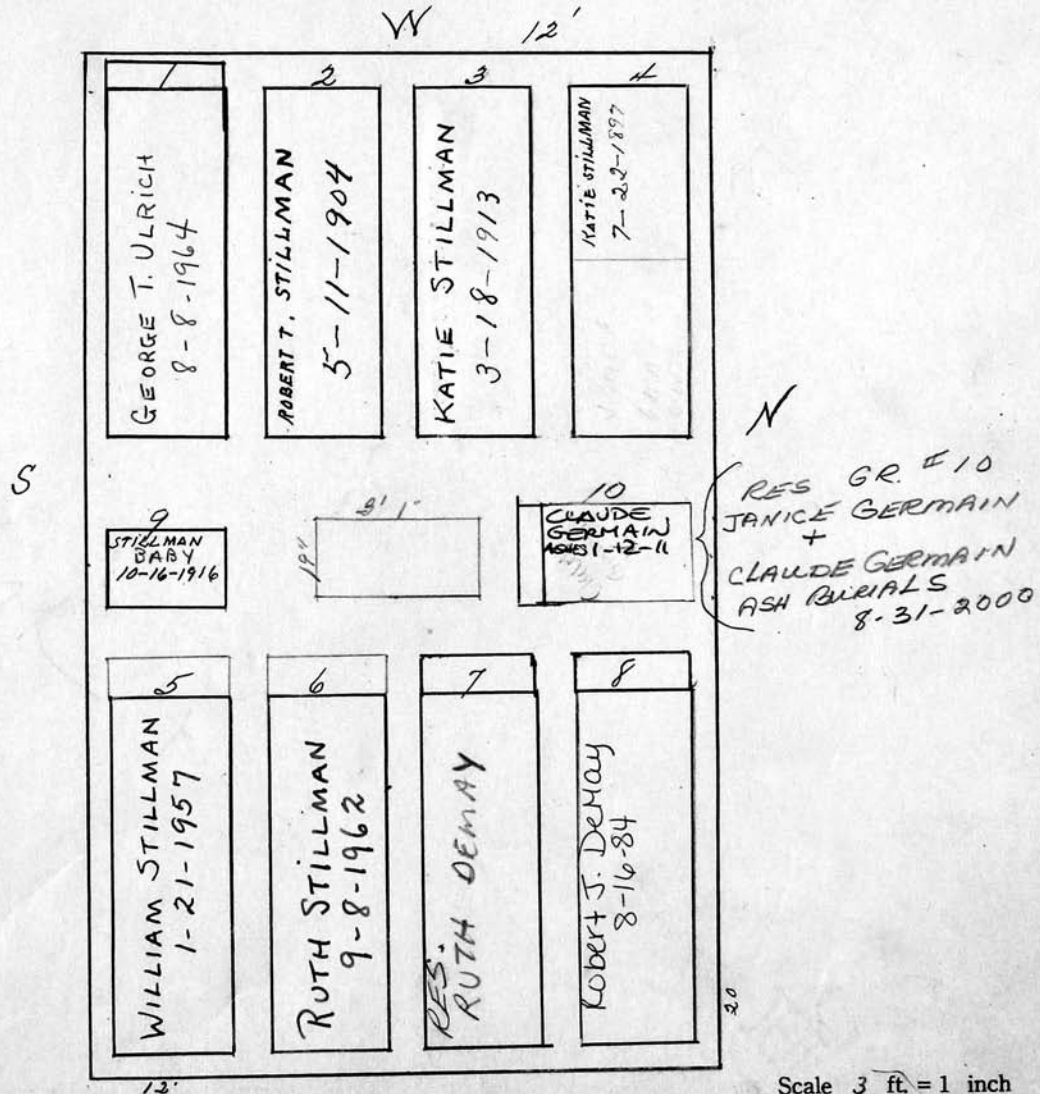 W 12'
1
GEORGE T. ULRICH
8-8-1964
2
ROBERT T. STILLMAN
5-11-1904
3
KATIE STILLMAN
3-18-1913
4
KATIE STILLMAN
7-22-1897
S
N
9
STILLMAN
BABY
10-16-1916
3' 1"
10
CLAUDE
GERMAIN
ASHES 1-12-11
RES GR. # 10
JANICE GERMAIN
+
CLAUDE GERMAIN
ASH BURIALS
8-31-2000
5
WILLIAM STILLMAN
1-21-1957
6
RUTH STILLMAN
9-8-1962
7
RES.
RUTH DEMAY
8
Robert J. DeMay
8-16-84
20
12'
Scale 3 ft. = 1 inch